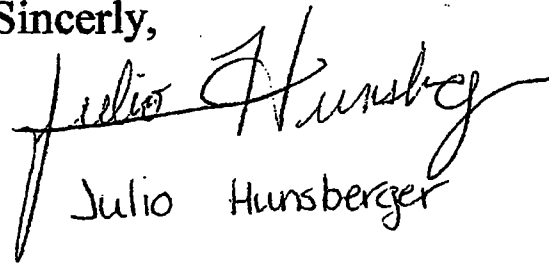 Sincerly,
Julio Hunsbg
Julio Hunsberger